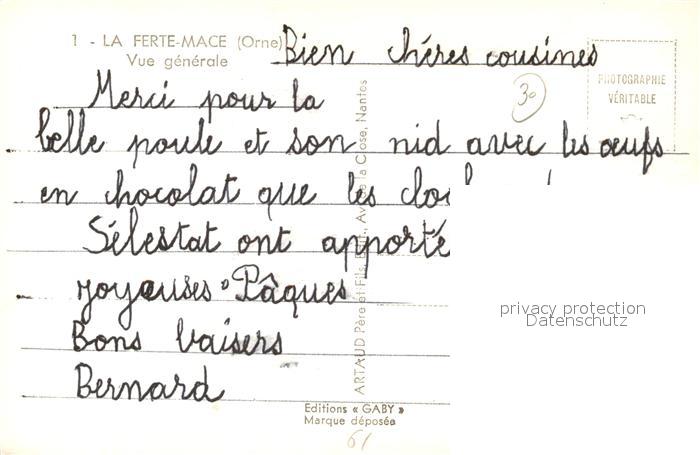 1 - LA FERTE-MACE (Orne)
Vue générale
Bien chéres cousines
PHOTOGRAPHIE
VÉRITABLE
30
Merci pour la
belle poule et son nid avec les œufs
en chocolat que les
Sélestat ont apporté
joyeuses Pâques
Bons baisers
Bernard
ARTAUD Père et Fils, la Close, Nantes
Editions « GABY »
Marque déposée
61
privacy protection
Datenschutz